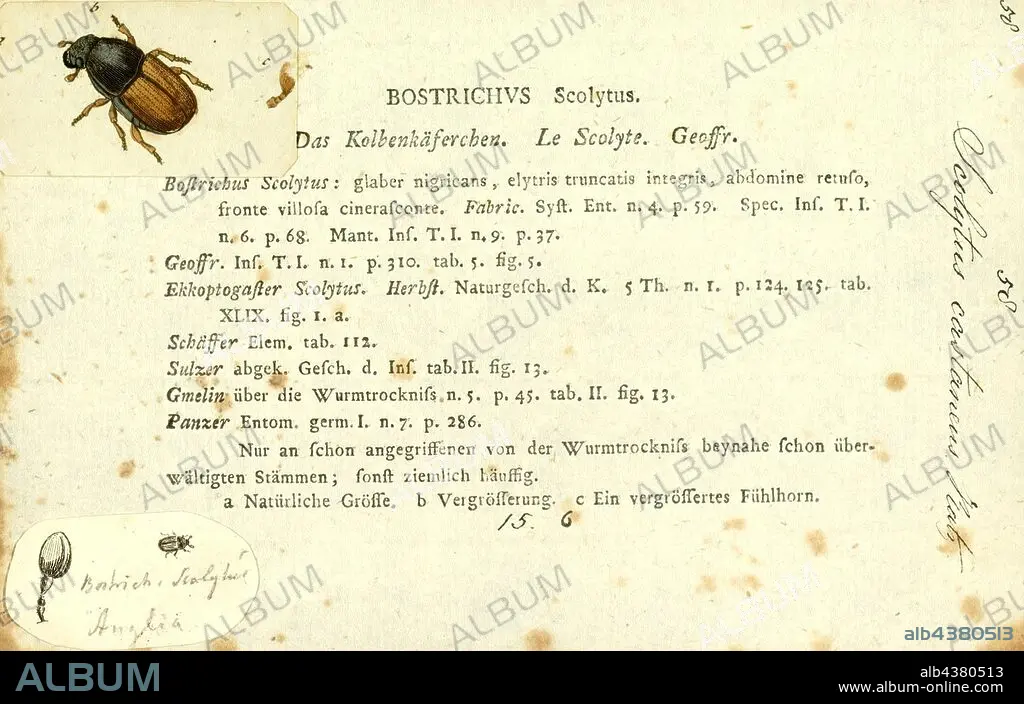 b
c
58
BOSTRICHVS Scolytus.
Das Kolbenkäferchen. Le Scolyte. Geoffr.
Boſtrichus Scolytus: glaber nigricans, elytris truncatis integris, abdomine retuſo,
fronte villoſa cineraſconte. Fabric. Syſt. Ent. n. 4. p. 59. Spec. Inſ. T. I.
n. 6. p. 68. Mant. Inſ. T. I. n. 9. p. 37.
Geoffr. Inſ. T. I. n. 1. p. 310. tab. 5. fig. 5.
Ekkoptogaſter Scolytus. Herbſt. Naturgeſch. d. K. 5 Th. n. 1. p. 124. 125. tab.
XLIX. fig. 1. a.
Schäffer Elem. tab. 112.
Sulzer abgek. Geſch. d. Inſ. tab. II. fig. 13.
Gmelin über die Wurmtrockniſs n. 5. p. 45. tab. II. fig. 13.
Panzer Entom. germ. I. n. 7. p. 286.
Nur an ſchon angegriffenen von der Wurmtrockniſs beynahe ſchon über-
wältigten Stämmen; ſonſt ziemlich häuffig.
a Natürliche Gröſſe. b Vergröſſerung. c Ein vergröſſertes Fühlhorn.
15. 6
Scolytus castaneus
58
Bostrich. Scolytus
Anglia
ALBUM
alb4380513
ALBUM
alb4380513
www.album-online.com